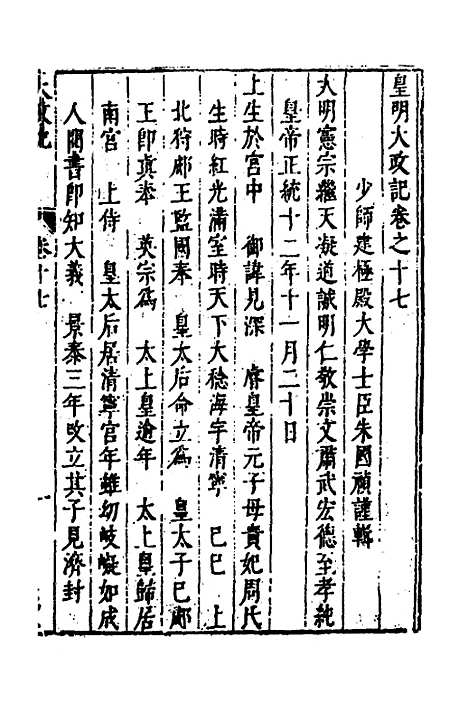 皇明大政記卷之十七
少師建極殿大學士臣朱國禎謹輯
大明憲宗繼天凝道誠明仁敬崇文肅武宏德至孝純
皇帝正統十二年十一月二十日
上生於宮中 御諱見深 睿皇帝元子母貴妃周氏
生時紅光滿室時天下大稔海宇清寧 己巳 上
北狩郕王監國奉 皇太后命立爲 皇太子已郕
王即真奉 英宗爲 太上皇逾年 太上皇歸居
南宮 上侍 皇太后居清寧宮年雖幼岐嶷如成
人閱書即知大義 景泰三年改立其子見濟封
大政記
卷十七